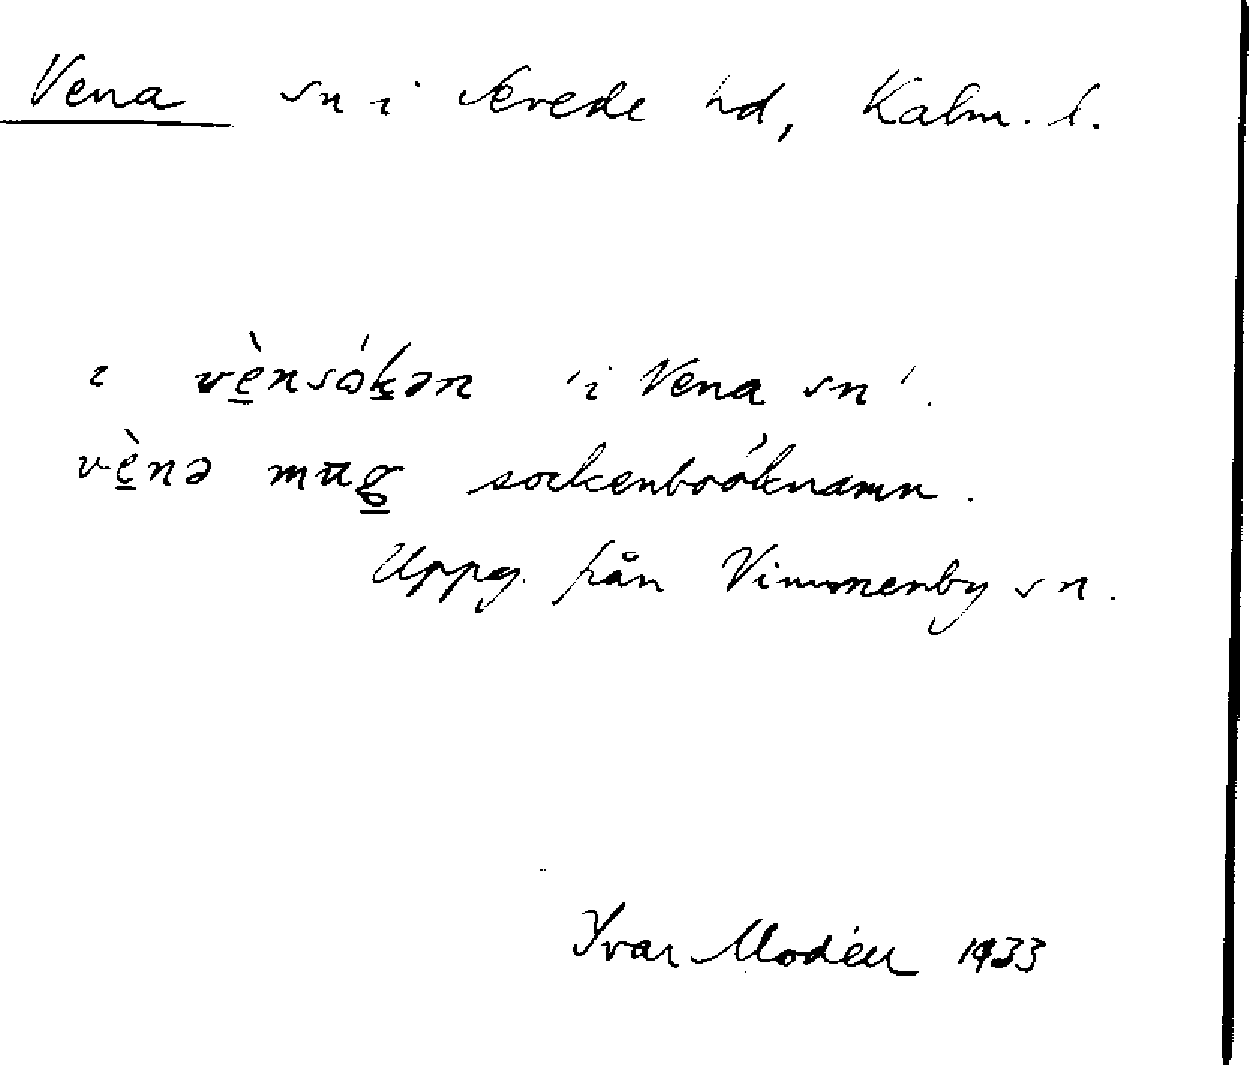 Vena sn i Sevede hd, Kalm. l.
i vè̱nsóḵən 'i Vena sn'.
vè̱nə mug̱ sockenboöknamn.
Uppg. från Vimmerby sn.
Ivar Modéer 1933